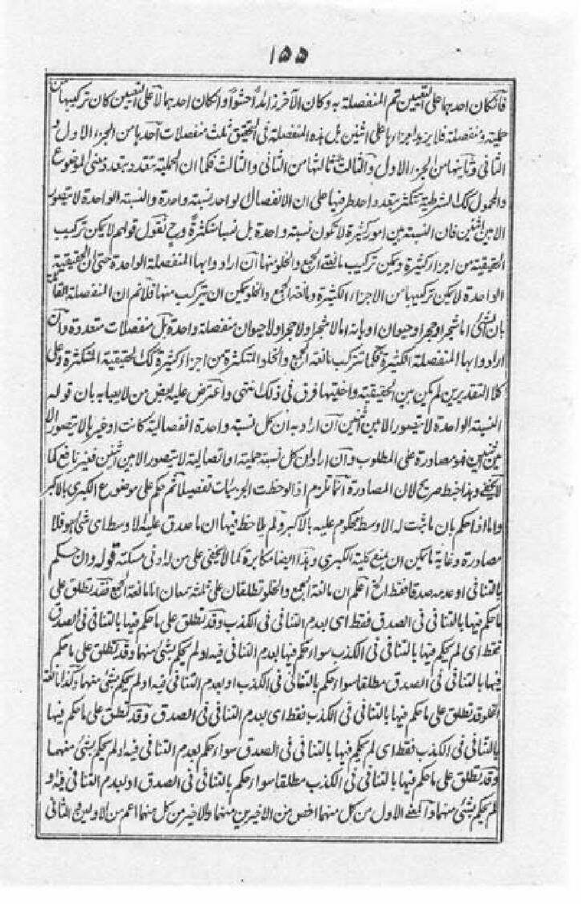 ١٥٥
فان كان احدهما على التعيين تم المنفصلة به وكان الآخر زائدا حشوا وان كان احدهما لا على التعيين كان تركيبها من
حملية ومنفصلة فلا يزيد اجزاؤها على اثنين بل هذه المنفصلة فى التحقيق ثلث منفصلات احدها من الجزء الاول و
الثانى وثانيتها من الجزء الاول والثالث وثالثتها من الثانى والثالث فكما ان الحملية تتعدد بتعدد معنى الموضوع
والمحمول كذلك الشرطية تتكثر بتعدد احد طرفيها على ان الانفصال الواحد نسبة واحدة والنسبة الواحدة لا تتصور
الا بين اثنين فان النسبة بين امور كثيرة لا تكون نسبة واحدة بل نسبا متكثرة وح نقول قولهم لا يمكن تركيب
الحقيقية من اجزاء كثيرة ويمكن تركيب مانعة الجمع والخلو منها ان ارادوا بها المنفصلة الواحدة حتى ان الحقيقية
الواحدة لا يمكن تركيبها من الاجزاء الكثيرة ومانعة الجمع والخلو يمكن ان تتركب منها فلا نم ان المنفصلة القائلة
بان الشئ اما شجر او حجر او حيوان او بانه اما لا شجر او لا حجر او لا حيوان منفصلة واحدة بل منفصلات متعددة وان
ارادوا بها المنفصلة الكثيرة فكما تتركب مانعة الجمع والخلو المتكثرة من اجزاء كثيرة كذلك الحقيقية المتكثرة وعلى
كلا التقديرين لم يكن بين الحقيقية واختيها فرق فى ذلك واعترض عليه بعض من لا يعبأ به بان قوله
النسبة الواحدة لا تتصور الا بين اثنين ان اراد به ان كل نسبة واحدة انفصالية كانت او غيرها لا تتصور الا
بين اثنين فهو مصادرة على المطلوب وان اراد ان كل نسبة حملية او اتصالية لا تتصور الا بين اثنين فغير نافع كما
لا يخفى وهذا خبط صريح لان المصادرة انما تلزم اذا لوحظت الجزئيات تفصيلا ثم حكم على موضوع الكبرى بالاكبر
واما اذا حكم بان ما ثبت له الاوسط محكوم عليه بالاكبر ولم يلاحظ فيها ان ما صدق عليه الاوسط اى شئ هو فلا
مصادرة وغاية ما يمكن ان يمنع كلية الكبرى وهذا ايضا مكابرة لما لا يخفى على من له ادنى مسكة قوله وان حكم
بالتنافى او عدمه صدقا فقط الخ اعلم ان مانعة الجمع والخلو تطلقان على ثلثة معان اما مانعة الجمع فقد تطلق على
ما حكم فيها بالتنافى فى الصدق فقط اى بعدم التنافى فى الكذب وقد تطلق على ما حكم فيها بالتنافى فى الصدق
فقط اى لم يحكم فيها بالتنافى فى الكذب سواء حكم فيها بعدم التنافى فيه او لم يحكم بشئ منهما وقد تطلق على ما حكم
فيها بالتنافى فى الصدق مطلقا سواء حكم بالتنافى فى الكذب او بعدم التنافى فيه او لم يحكم بشئ منهما وكذا مانعة
الخلو قد تطلق على ما حكم فيها بالتنافى فى الكذب فقط اى بعدم التنافى فى الصدق وقد تطلق على ما حكم فيها
بالتنافى فى الكذب فقط اى لم يحكم فيها بالتنافى فى الصدق سواء حكم بعدم التنافى فيه او لم يحكم بشئ منهما
وقد تطلق على ما حكم فيها بالتنافى فى الكذب مطلقا سواء حكم بالتنافى فى الصدق او بعدم التنافى فيه او
لم يحكم بشئ منهما والمعنى الاول من كل منهما اخص من الاخيرين منهما والاخير من كل منهما اعم من الاولين والثانى